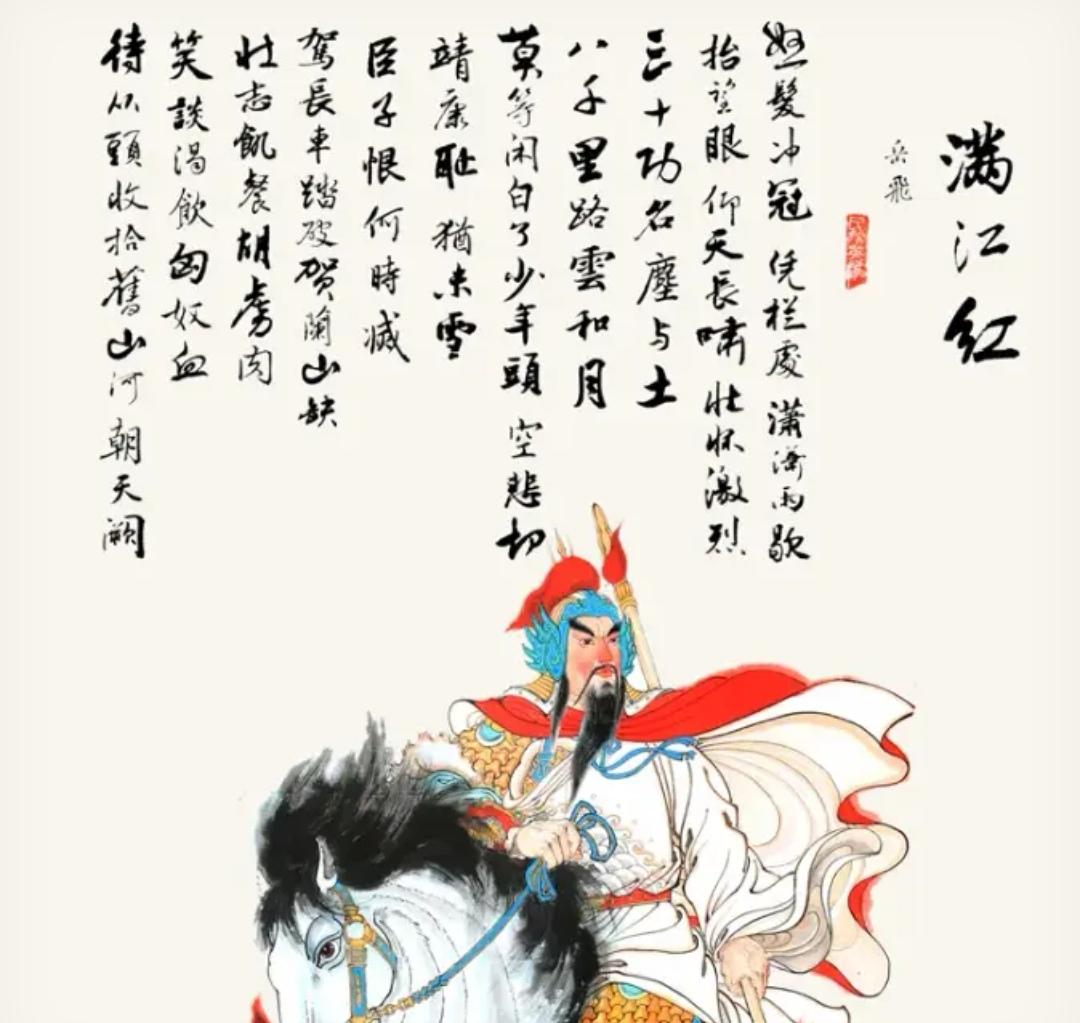 满江红
岳飛
怒髮冲冠 凭栏處 潇潇雨歇
抬望眼 仰天长啸 壮怀激烈
三十功名塵与土
八千里路雲和月
莫等闲白了少年頭 空悲切
靖康耻 猶未雪
臣子恨何時滅
駕長車踏破贺蘭山缺
壮志飢餐胡虏肉
笑談渴飲匈奴血
待从頭收拾舊山河朝天阙